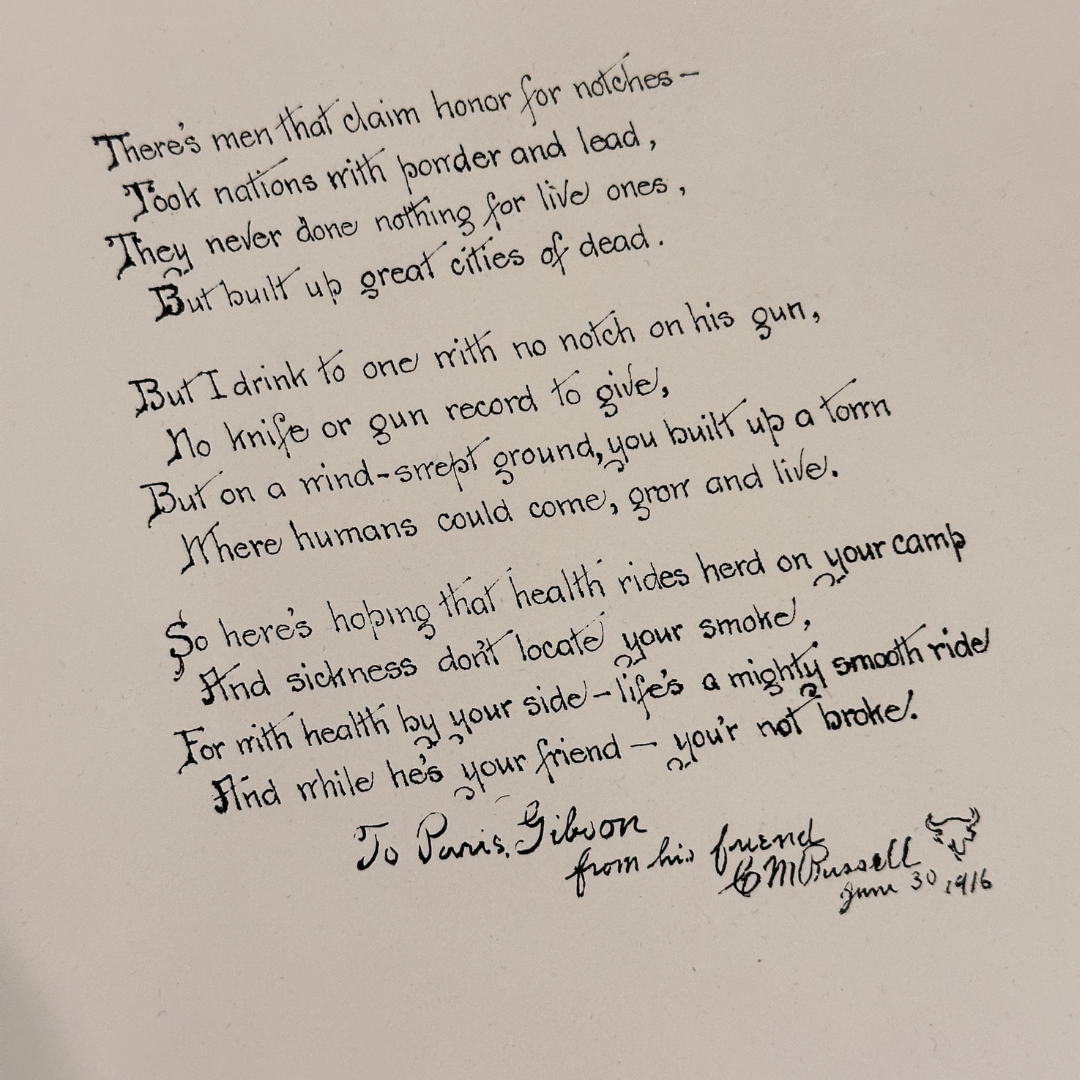 There's men that claim honor for notches—
Took nations with powder and lead,
They never done nothing for live ones,
But built up great cities of dead.
But I drink to one with no notch on his gun,
No knife or gun record to give,
But on a wind-swept ground, you built up a town
Where humans could come, grow and live.
So here's hoping that health rides herd on your camp
And sickness don't locate your smoke,
For with health by your side—life's a mighty smooth ride
And while he's your friend— you'r not broke.
To Paris Gibson
from his friend
CM Russell
June 30 1916